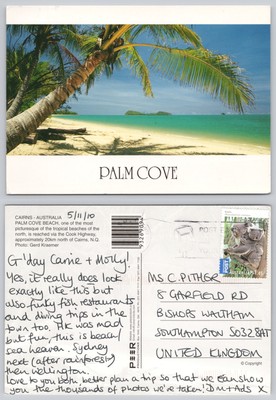 PALM COVE
CAIRNS - AUSTRALIA
PALM COVE BEACH, one of the most
picturesque of the tropical beaches of the
north, is reached via the Cook Highway,
approximately 20km north of Cairns, N.Q.
Photo: Gerd Kraemer
5/11/10
G'day Carrie + Molly!
Yes, it really does look
exactly like this but
also funky fish restaurants
and diving trips in the
town too. HK was mad
but fun, this is beach/
sea heaven. Sydney
next (after rainforest)
then Wellington.
Love to you both, better plan a trip so that we can show
you the thousands of photos we've taken! J+m + Ads X
PEER
MS C. PITHER
8 GARFIELD RD
BISHOPS WALTHAM
SOUTHAMPTON SO32 8AT
UNITED KINGDOM